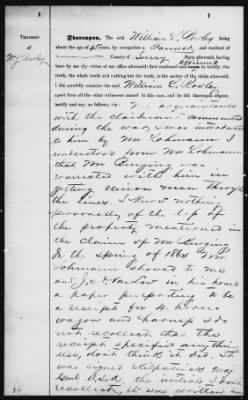 TESTIMONY
of
Thereupon, The said William C. Pooley being
about the age of 45 years, by occupation a Farmer, and resident of
County of Surry Party aforesaid, having
been by me (by virtue of my office aforesaid) first cautioned and affirmed to testify, the
truth, the whole truth and nothing but the truth, in the matter of the claim aforesaid, I
did carefully examine the said William C. Pooley
apart from all the other witnesses named in this case, and he did thereupon depose,
testify and say, as follows, viz: My acquaintance
with the claimant commenced
during the war, I was introduced
to him by Mr Lohmann I
understood from Mr Lohmann
that Mr
connected with him in
getting union men through
the lines. I knew nothing
personally of the loss of
the property mentioned in
the claim of Mr
In the spring of 1864 Mr
Lohmann showed to me
and J, C in his house
a paper purporting to be
a receipt for 4 horses
wagon and harness I do
not recollect that the
receipt specified any their
use, dont think it did. It
was signed Kilpatrick Maj
Genl U.S.A. the initials I dont
recollect, it was written in